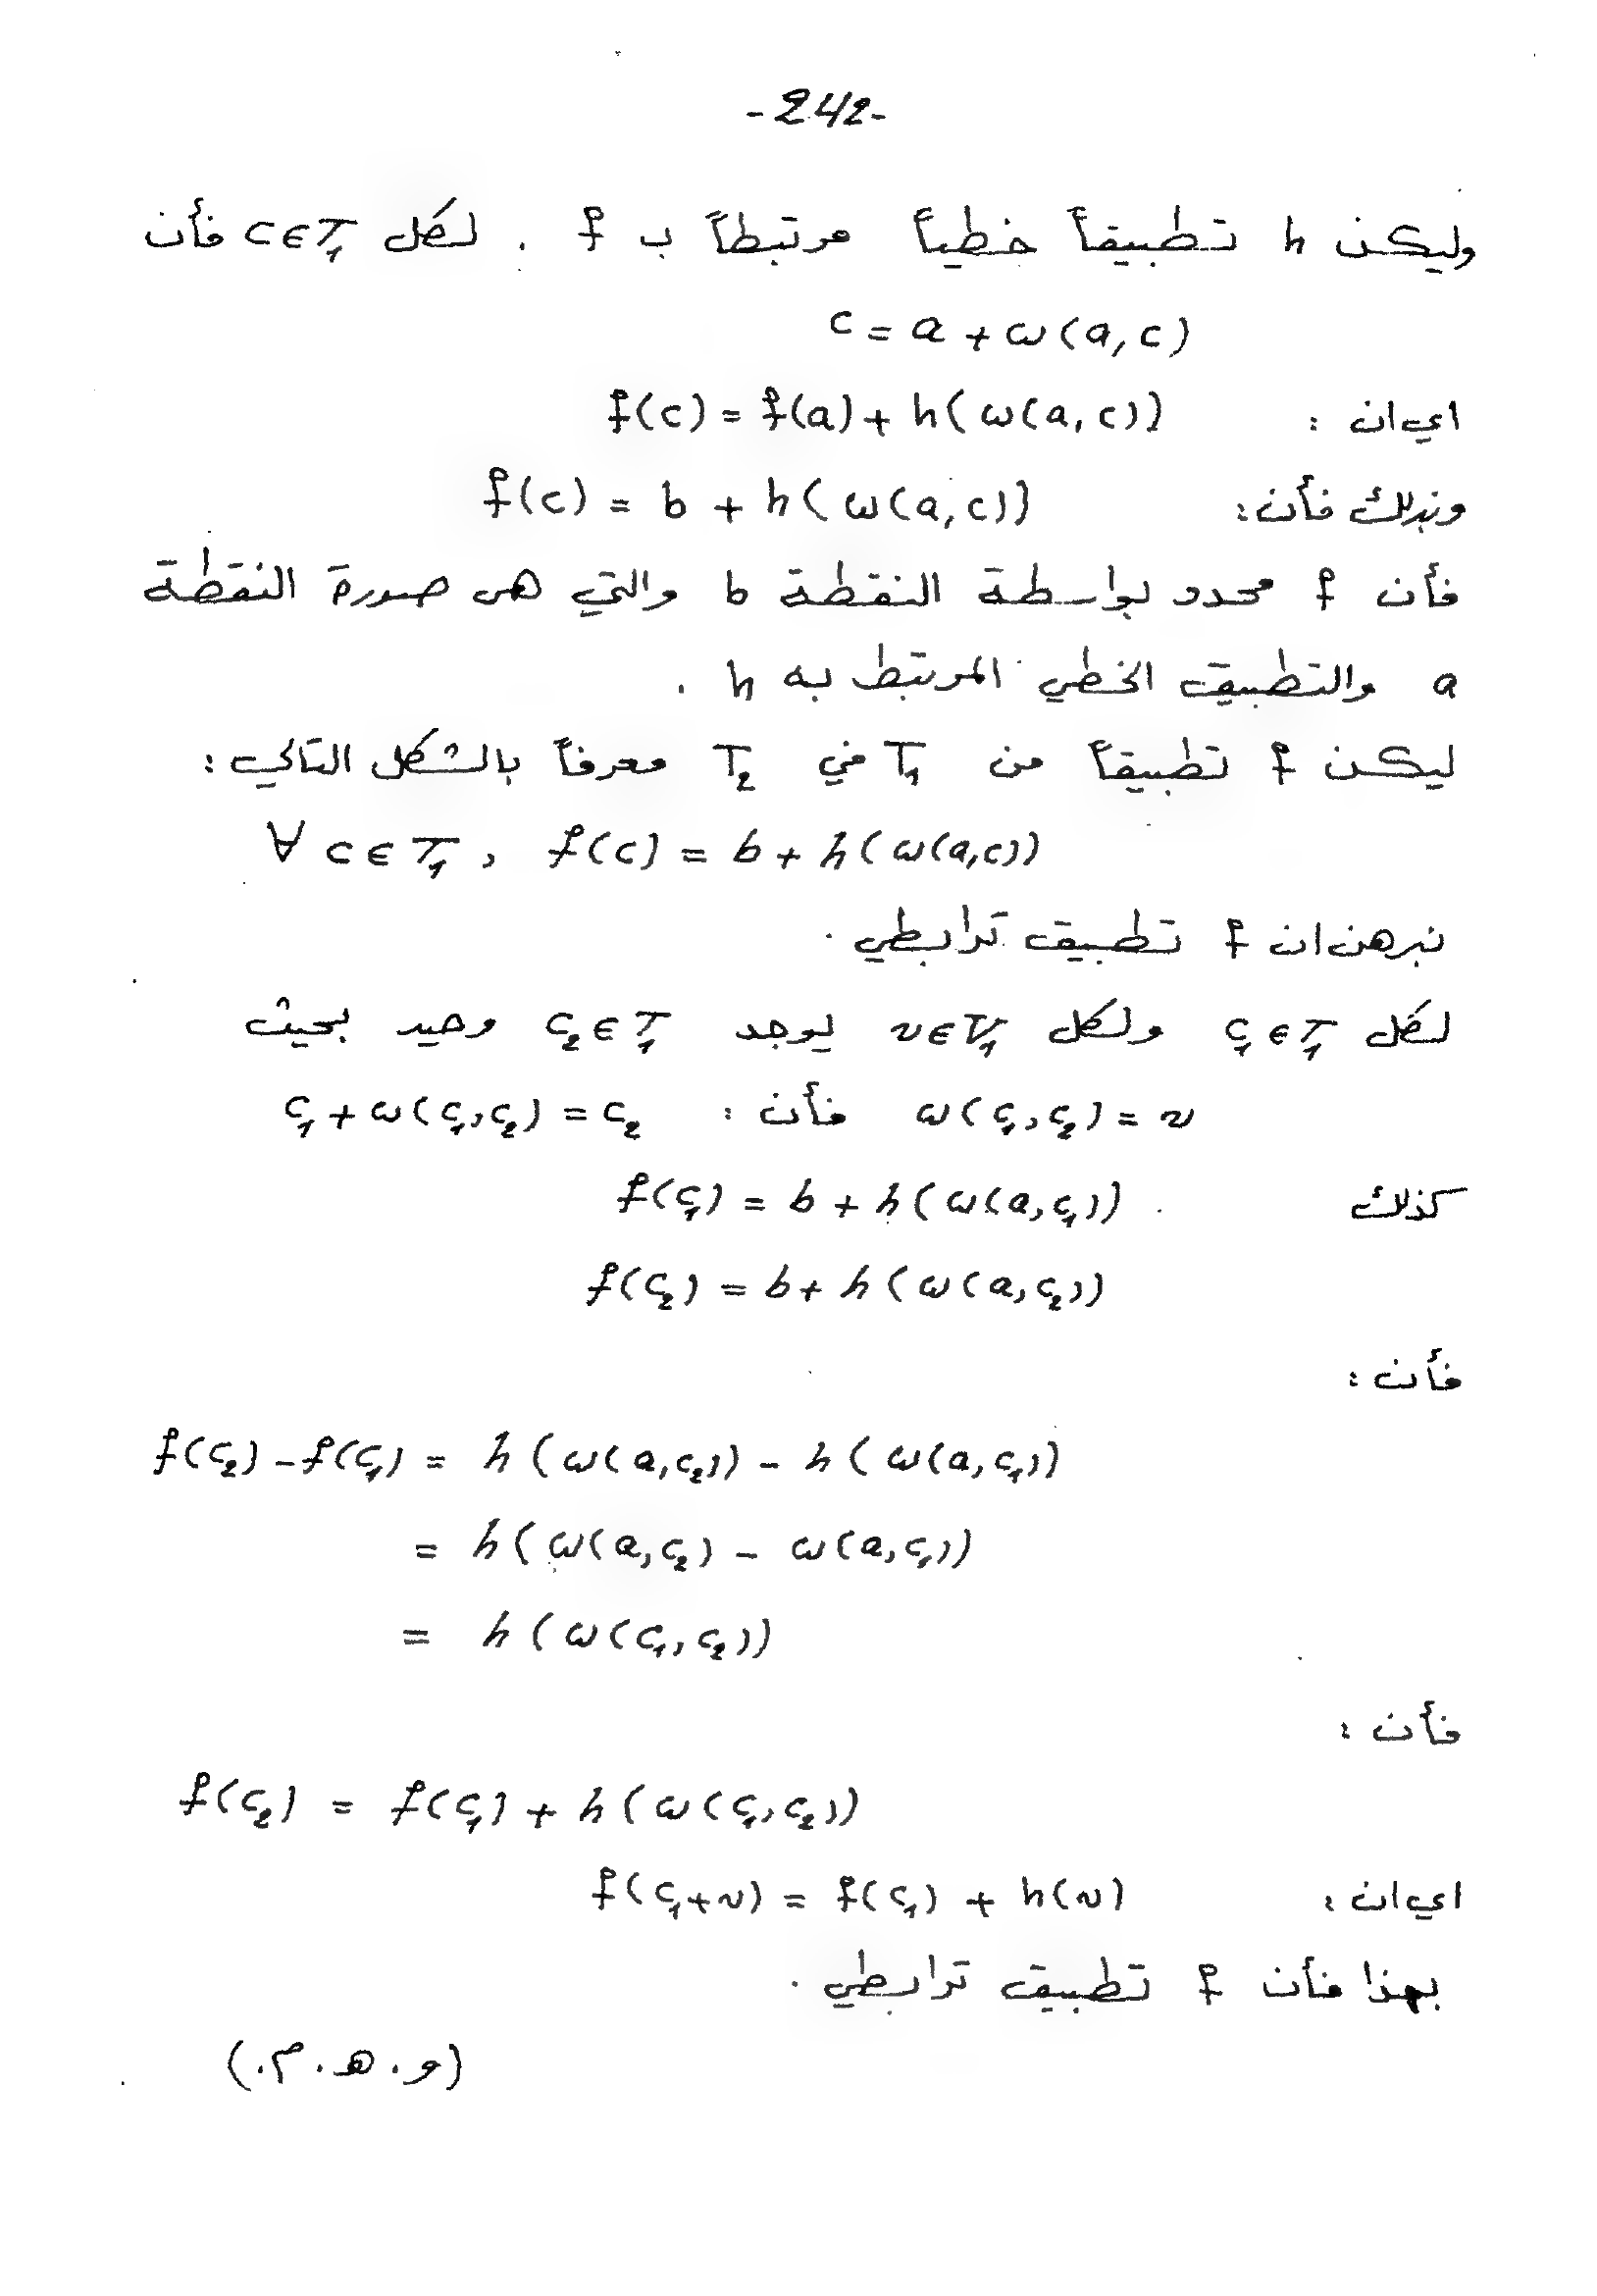 -242-
وليكن h تطبيقاً خطياً مرتبطاً ب f . لكل c∈T₁ فأن
c = a + ω(a,c)
اي ان : f(c) = f(a) + h(ω(a,c))
وبذلك فأن: f(c) = b + h(ω(a,c))
فأن f محدد بواسطة النقطة b والتي هي صورة النقطة
a والتطبيق الخطي المرتبط به h .
ليكن f تطبيقاً من T₁ في T₂ معرفاً بالشكل التالي :
∀ c∈T₁ , f(c) = b + h(ω(a,c))
نبرهن ان f تطبيق ترابطي .
لكل c₁∈T₁ ولكل v∈V₁ يوجد c₂∈T₁ وحيد بحيث
ω(c₁,c₂) = v فأن : c₁+ω(c₁,c₂) = c₂
كذلك f(c₁) = b + h(ω(a,c₁))
f(c₂) = b + h(ω(a,c₂))
فأن :
f(c₂) - f(c₁) = h(ω(a,c₂)) - h(ω(a,c₁))
= h(ω(a,c₂) - ω(a,c₁))
= h(ω(c₁,c₂))
فأن :
f(c₂) = f(c₁) + h(ω(c₁,c₂))
اي ان : f(c₁+v) = f(c₁) + h(v)
بهذا فأن f تطبيق ترابطي .
(و . ه . م .)